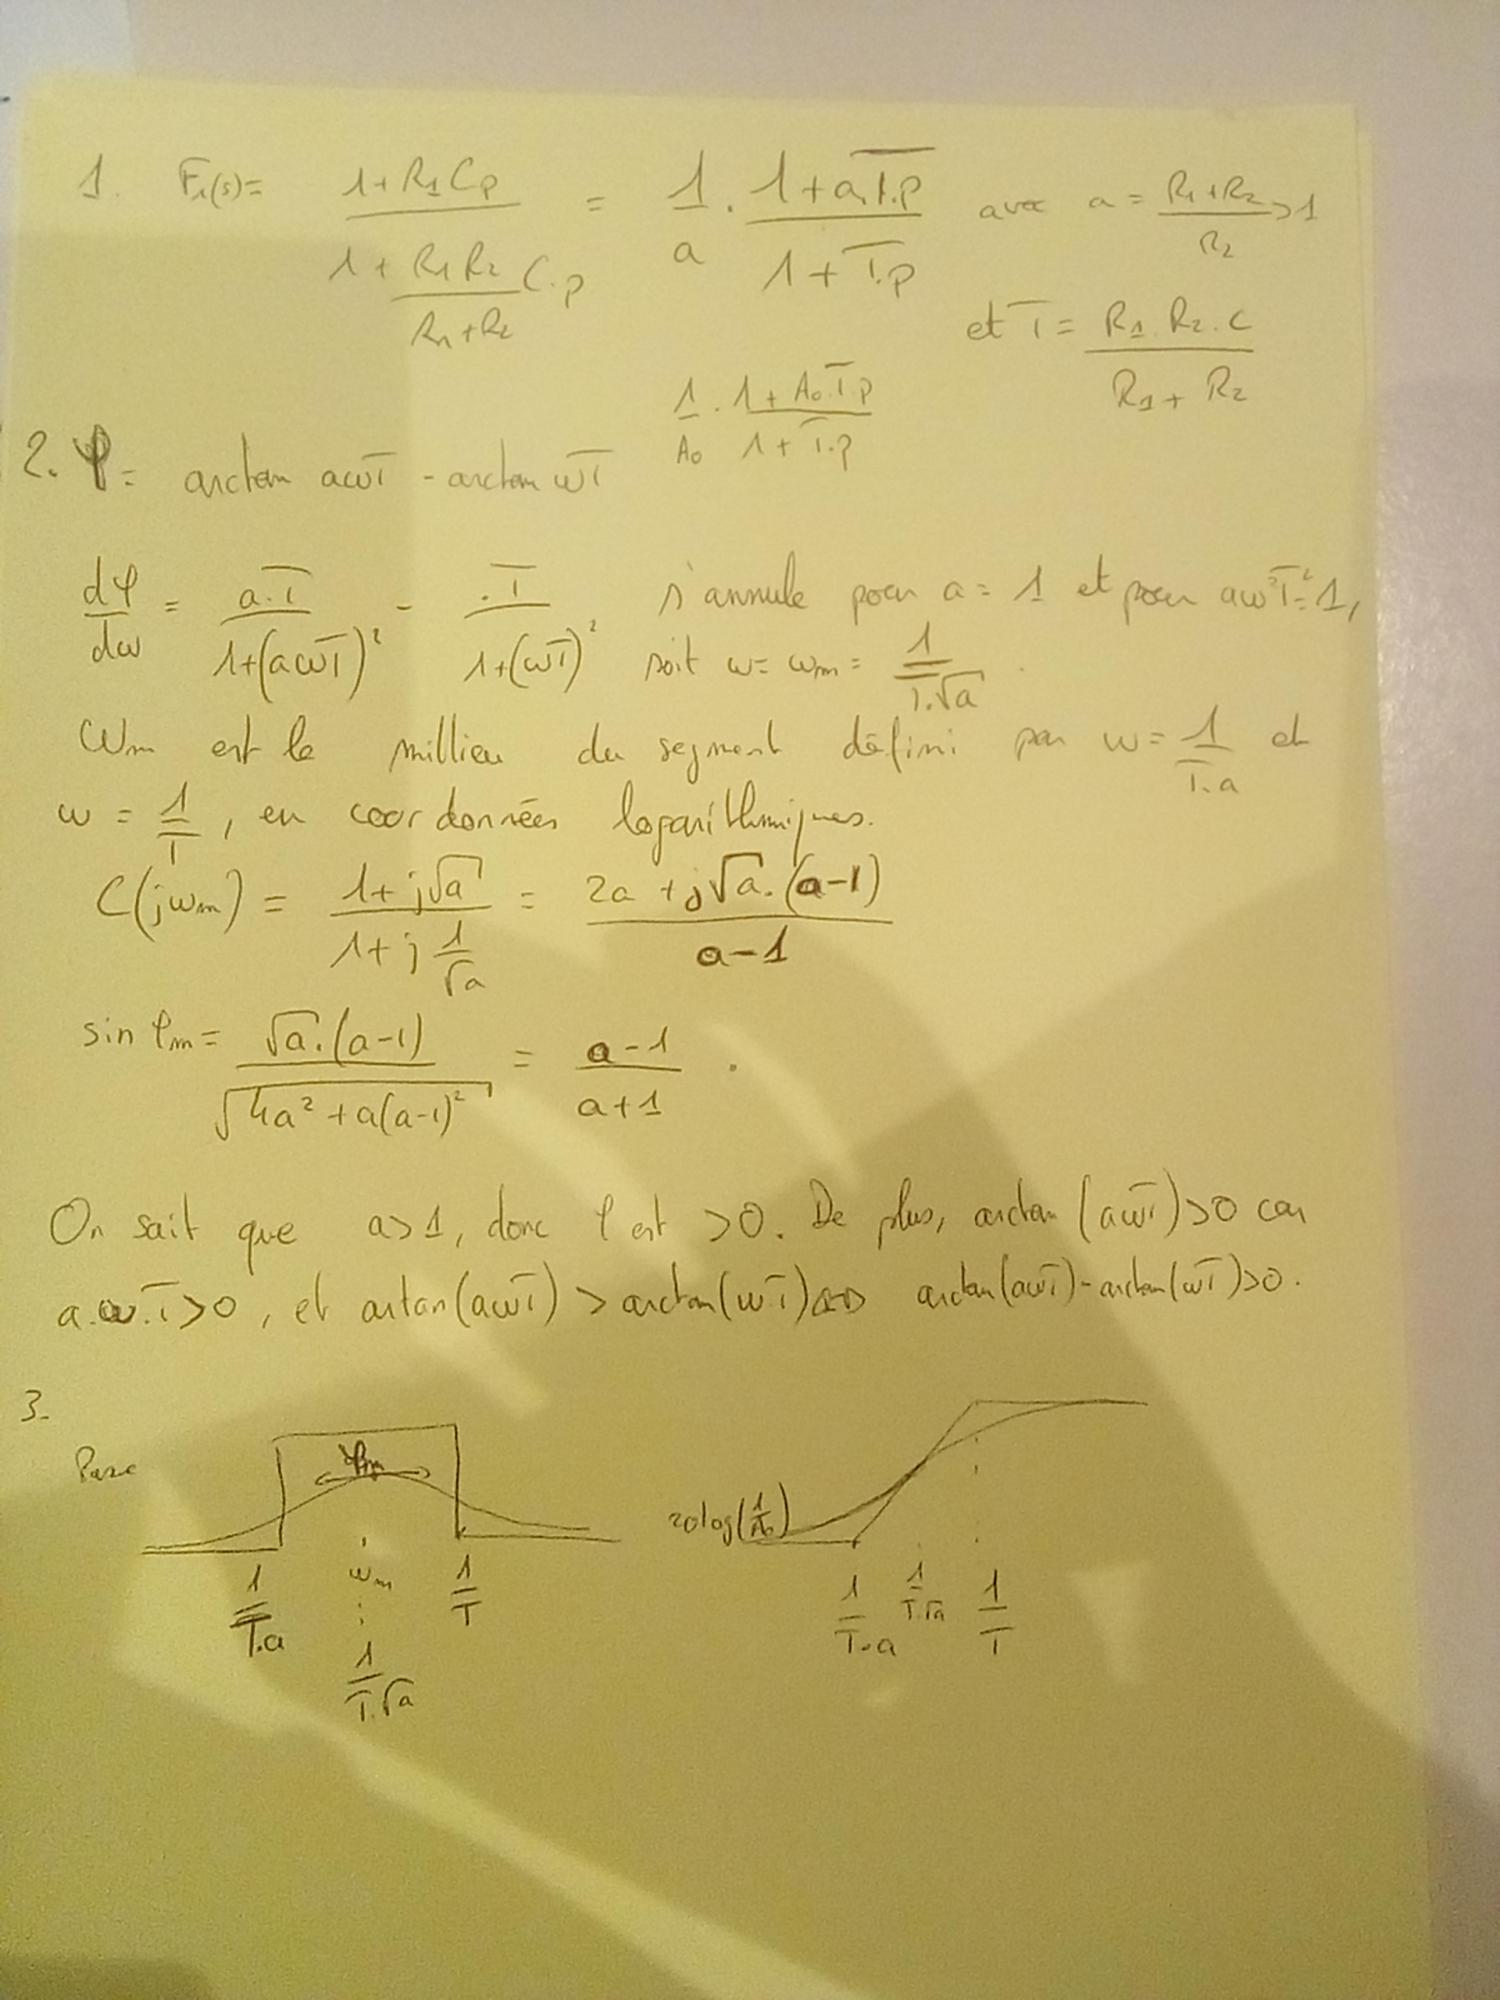 1. F₁(s) = (1+R1Cp)/(1+(R1R2)/(R1+R2) C.p) = 1/a . (1+a.T.p)/(1+T.p) avec a = (R1+R2)/R2 > 1
et T = (R1.R2.C)/(R1+R2)
1/A₀ . (1+A₀.Tp)/(1+T.p)
2. φ = arctan aωT - arctan ωT
dφ/dω = a.T/(1+(aωT)²) - .T/(1+(ωT)²) s'annule pour a = 1 et pour aω²T²=1,
soit ω = ωm = 1/(T.√a).
ωm est le millieu du segment défini par ω = 1/(T.a) et
ω = 1/T, en coordonnées logarithmiques.
C(jωm) = (1+j√a)/(1+j 1/√a) = (2a+j√a.(a-1))/(a-1)
sin φm = √a.(a-1)/√(4a²+a(a-1)²) = (a-1)/(a+1).
On sait que a>1, donc φ est >0. De plus, arctan (aωT)>0 car
a.ω.T>0, et artan(aωT) > arctan(ωT) ⇔ arctan(aωT)-arctan(ωT)>0.
3.
φm
20log(1/A₀)
1/(T.a) ωm 1/T
1/(T.√a)
1/(T.a) 1/(T.√a) 1/T